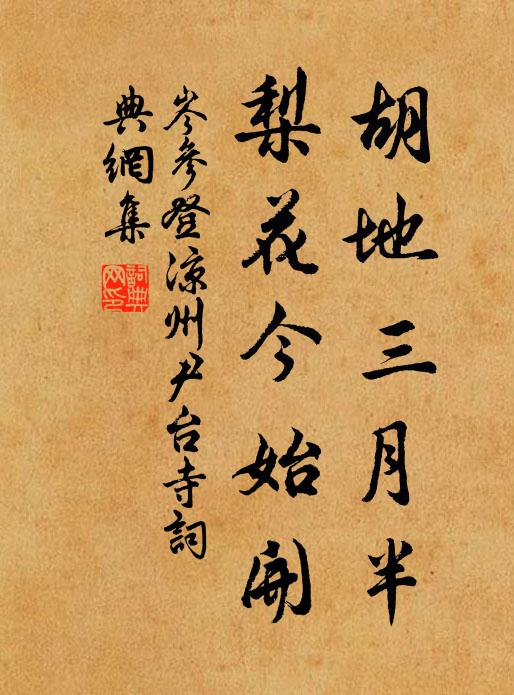 胡地三月半
梨花今始開
岑參登涼州尹台寺詞
典網集
詞典
网印